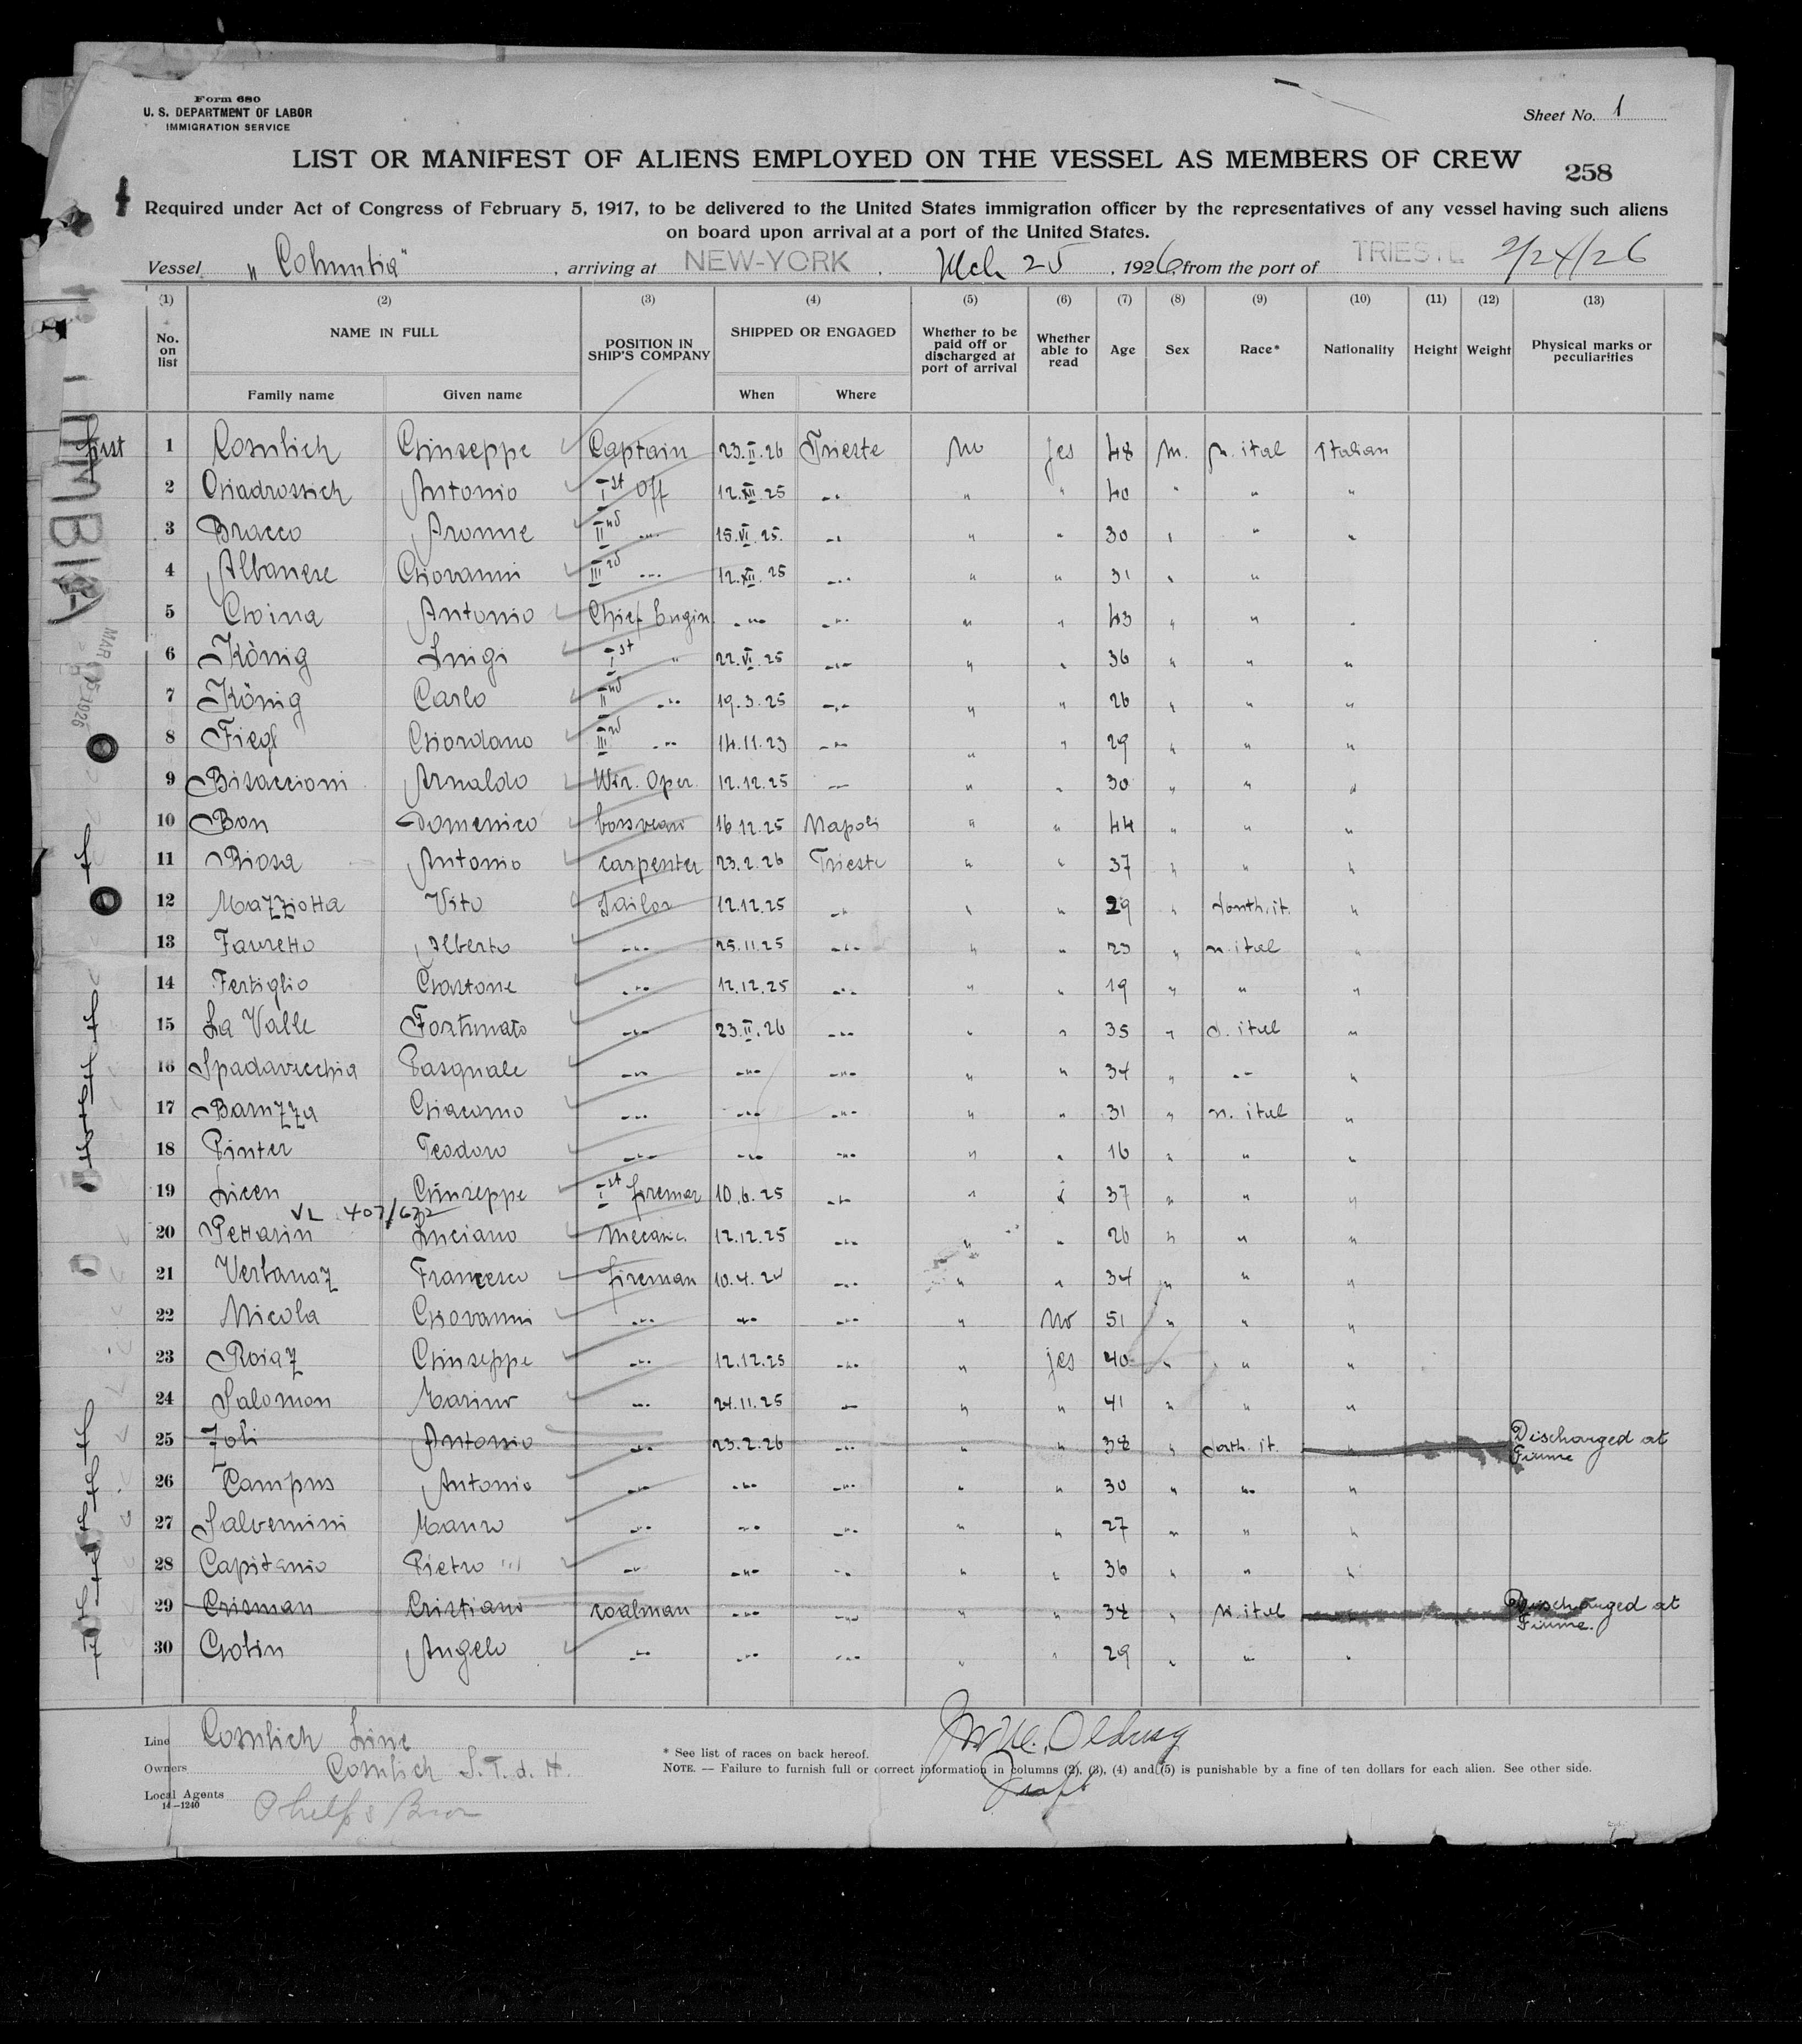 Form 680
U. S. DEPARTMENT OF LABOR
IMMIGRATION SERVICE
Sheet No. 1
LIST OR MANIFEST OF ALIENS EMPLOYED ON THE VESSEL AS MEMBERS OF CREW
258
Required under Act of Congress of February 5, 1917, to be delivered to the United States immigration officer by the representatives of any vessel having such aliens
on board upon arrival at a port of the United States.
Vessel "Columbia", arriving at NEW-YORK, Mch 25, 1926, from the port of TRIESTE 2/24/26
(1) (2) (3) (4) (5) (6) (7) (8) (9) (10) (11) (12) (13)
No. on list NAME IN FULL Family name Given name POSITION IN SHIP'S COMPANY SHIPPED OR ENGAGED When Where Whether to be paid off or discharged at port of arrival Whether able to read Age Sex Race* Nationality Height Weight Physical marks or peculiarities
first 1 Cosulich Giuseppe Captain 23.II.26 Trieste No jes 48 M. N. ital Italian
2 Giadrossich Antonio Ist Off 12.XII.25 -"- " " 40 " " "
3 Bracco Aronne IInd -"- 15.VI.25. -"- " " 30 " " "
4 Albanese Giovanni IIIrd -"- 12.XII.25 -"- " " 31 " "
5 Goina Antonio Chief Engin. -"- -"- " " 43 " " "
6 König Luigi Ist " 22.VI.25 -"- " " 36 " " "
7 König Carlo IInd -"- 19.3.25 -"- " " 26 " " "
8 Fiegl Giordano IIIrd -"- 14.11.23 -"- " " 29 " " "
9 Bisaccioni Arnaldo Wir. Oper. 12.12.25 -"- " " 30 " " "
10 Bon Domenico 16.12.25 Napoli " " 44 " " "
11 Riosa Antonio carpenter 23.2.26 Trieste " " 37 " " "
12 Mazziotta Vito Sailor 12.12.25 -"- " " 29 " South. it. "
13 Favretto Alberto -"- 25.11.25 -"- " " 23 " n. ital "
14 Fertiglio Gastone -"- 12.12.25 -"- " " 19 " " "
15 La Valle Fortunato -"- 23.II.26 -"- " " 35 " S. ital "
16 Spadavecchia Pasquale -"- -"- -"- " " 34 " -"- "
17 Banuzza Giacomo -"- -"- -"- " " 31 " n. ital "
18 Pinter Teodoro -"- -"- -"- " " 16 " " "
19 Licen Giuseppe Ist fireman 10.6.25 -"- " " 37 " " "
VL 407/632
20 Pettarin Luciano Mecanic 12.12.25 -"- " " 26 " " "
21 Verbanaz Francesco fireman 10.4.24 -"- " " 34 " " "
22 Nicola Giovanni -"- -"- -"- " No 51 " " "
23 Roiaz Giuseppe -"- 12.12.25 -"- " jes 40 " " "
24 Salomon Marino -"- 24.11.25 -"- " " 41 " " "
25 Zoli Antonio -"- 23.2.26 -"- " " 38 " South. it. " Discharged at Fiume
26 Campus Antonio -"- -"- -"- " " 30 " " "
27 Salvemini Mauro -"- -"- -"- " " 27 " " "
28 Capitanio Pietro -"- -"- -"- " " 36 " " "
29 Crisman Cristiano coalman -"- -"- " " 32 " N. ital " Discharged at Fiume.
30 Gobin Angelo -"- -"- -"- " " 29 " " "
MAR 25 1926
Line Cosulich Line
Owners Cosulich S.T.d.N.
Local Agents Phelps Bros
14—1240
* See list of races on back hereof.
NOTE. — Failure to furnish full or correct information in columns (2), (3), (4) and (5) is punishable by a fine of ten dollars for each alien. See other side.